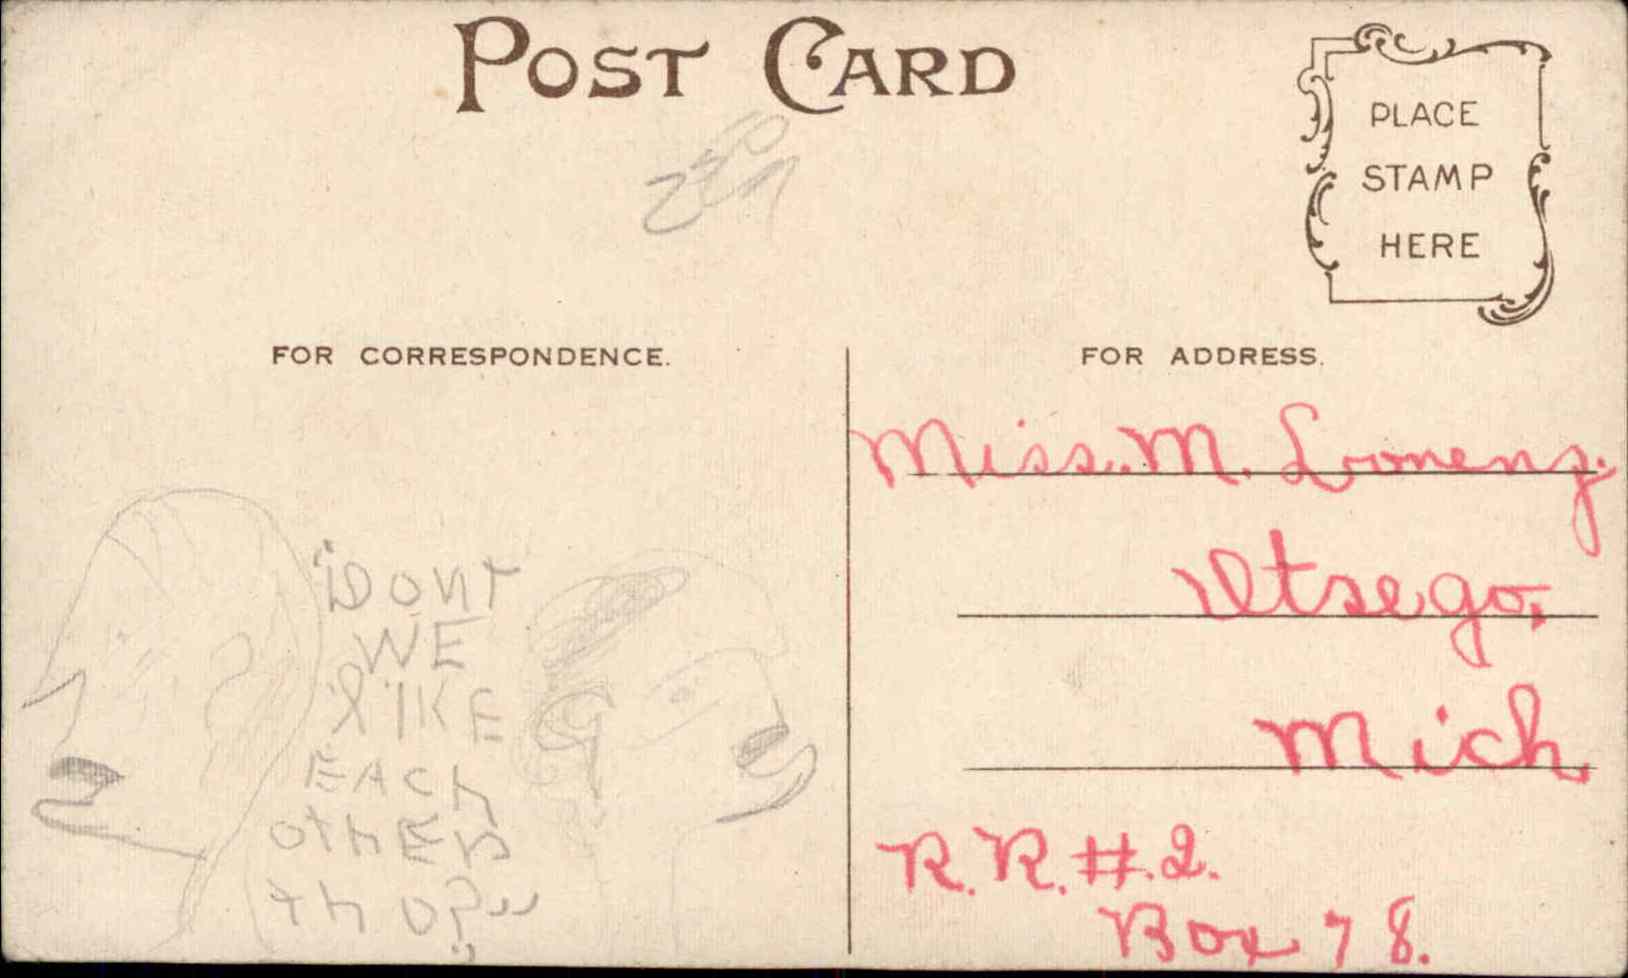 POST CARD
PLACE
STAMP
HERE
FOR CORRESPONDENCE.
FOR ADDRESS.
Miss. M. Lorenz.
Otsego,
Mich.
R. R. #. 2.
Box 78.
"DONT
WE
LIKE
EACH
OTHER
THO?"